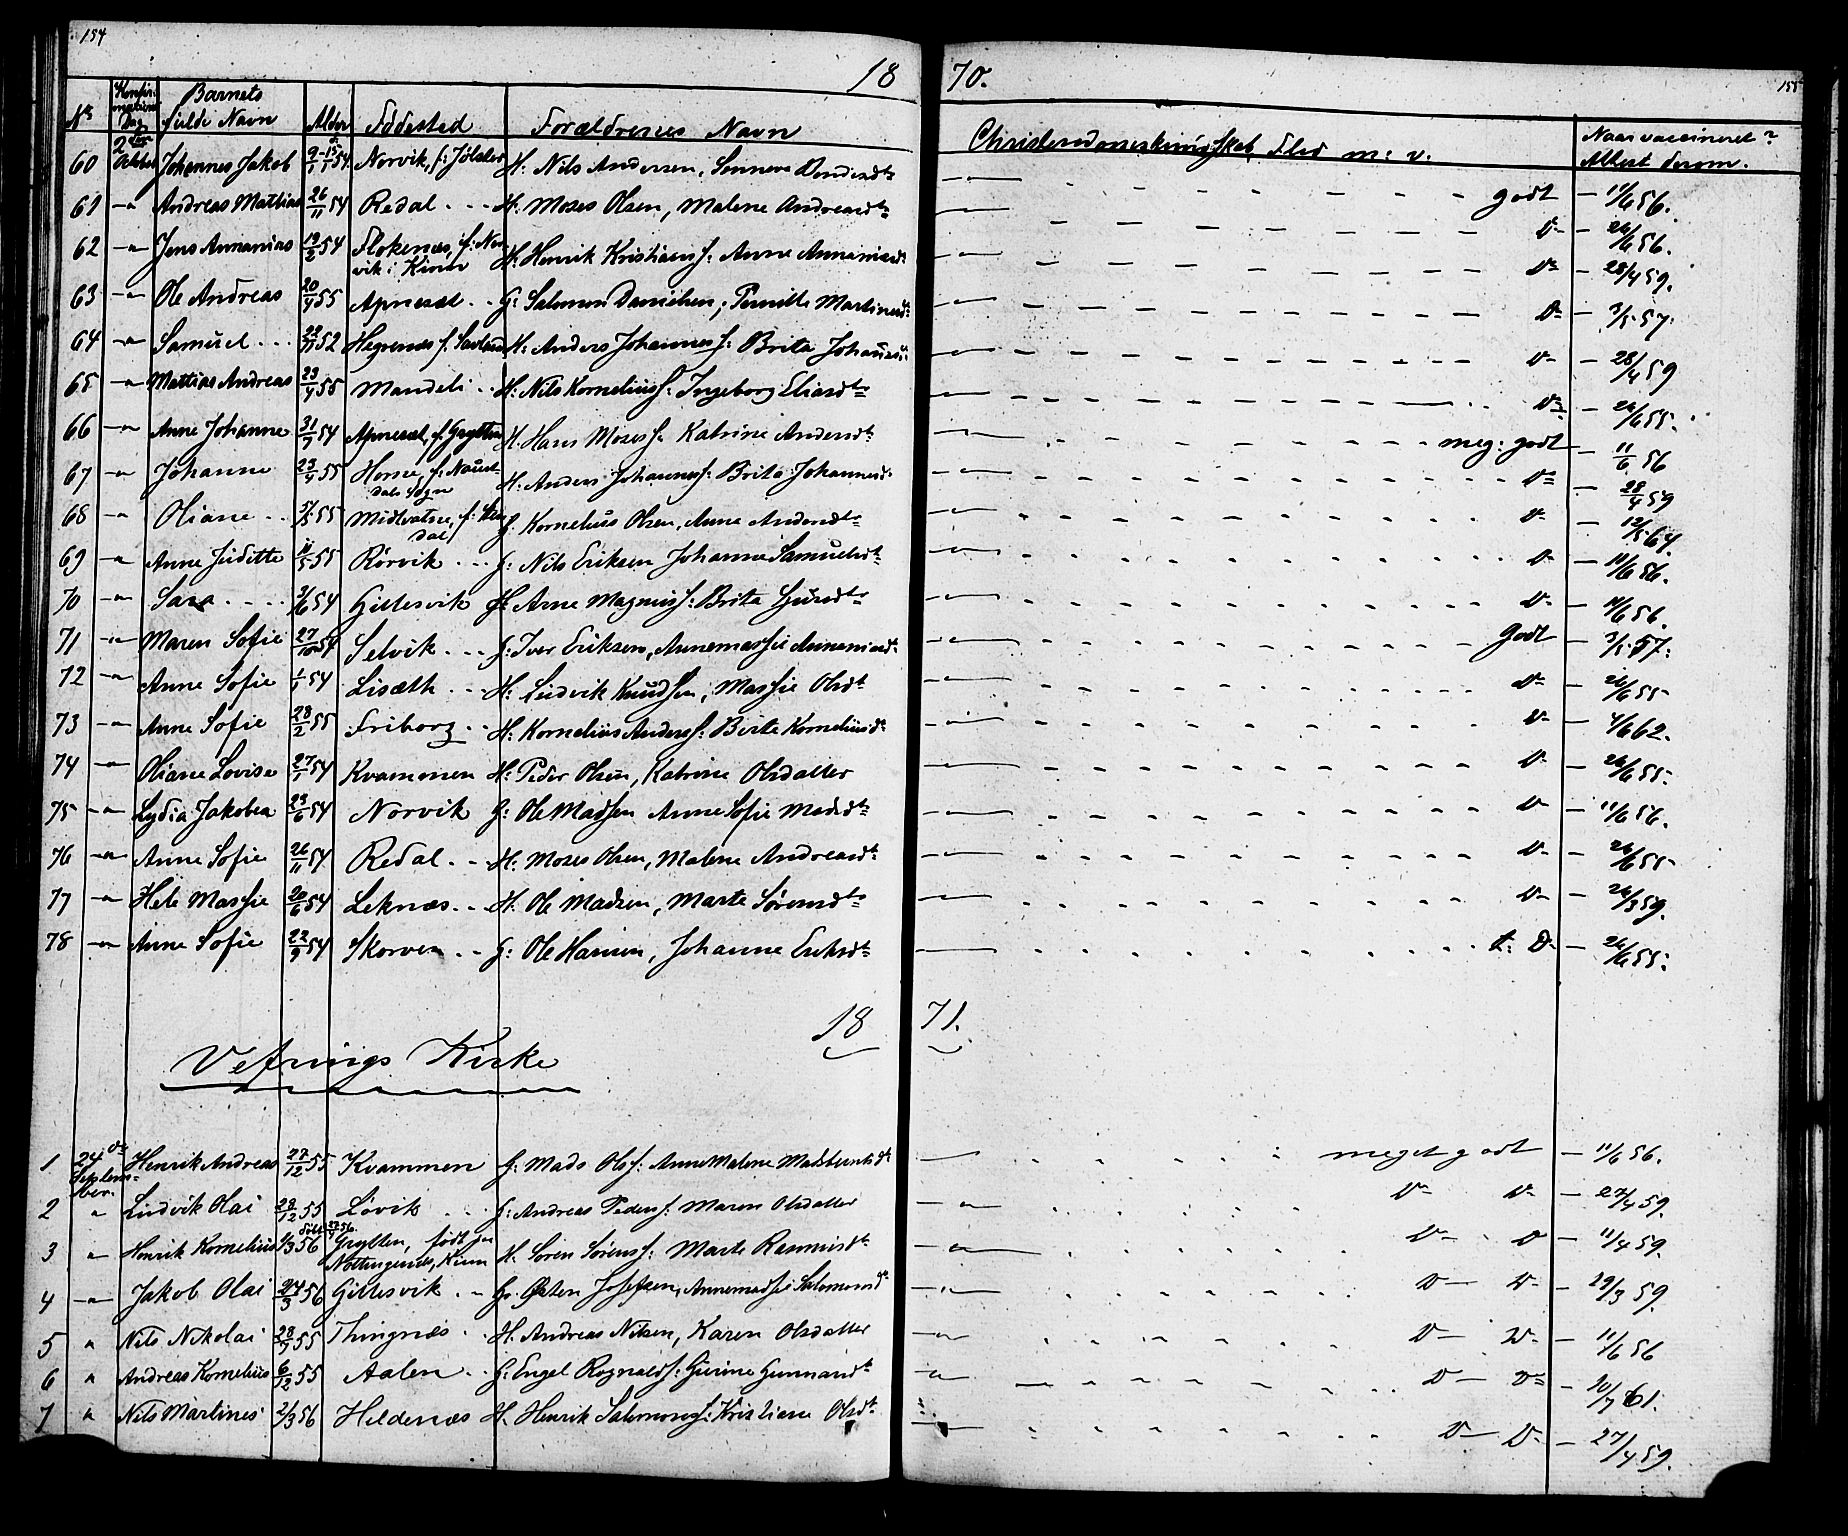 154
155
18 70.
No Konfirmations Dag Barnets fulde Navn Alder Fødested Forældrenes Navn Christendomskundskab, Flid m: v. Naar vaccineret? Attest derom.
60 2den October Johannes Jakob 54 Norvik, f: Jølster H: Nils Andersen, Senneve — godt — 11/6 56.
61 —"— Andreas Mattias 26/11 54 Redal H: Moses Olsen, Malene Andreasdt. — Do — 26/6 56.
62 —"— Jens Annanias 19/2 54 Flokenes, f: Norvik i Kinn H: Henrik Kristians f: Anne Annaniasdt. — Do — 28/4 59.
63 —"— Ole Andreas 20/4 55 Apnesæt G: Salomon Danielsen, Pernille Martinusdt. — Do — 3/5 57.
64 —"— Samuel 52 Hegrenæs f. H: Anders Johannes f: Brita Johannesdt. — Do — 28/4 59
65 —"— Mattias Andreas 23/4 55 Mandeli H: Nils Kornelius f: Ingeborg Eliasdt. — Do — 26/6 55.
66 —"— Anne Johanne 31/7 54 Apnesæt, f. Grytten H. Hans Moses f: Katrine Andersdt. — meg: godt — 11/6 56
67 —"— Johanne 23/4 55 Horne, f: Naustdals Sogn H: Anders Johannes f: Brita Johannesdt. — Do — 28/4 59
68 —"— Oliane 55 Midtvatne, f: G. Kornelius Olsen, Anne Andersdt. — Do — 12/5 64.
69 —"— Anne Juditte 11/5 55 Rørvik G: Nils Eriksen Johanne Samuelsdt. — Do — 11/6 56.
70 —"— Sara 54 Gillesvik H Arne Magnus f: Brita — Do — 11/6 56.
71 —"— Maren Sofie 27/10 54 Selvik G: Iver Eriksen, Annemassie Annaniasdt. — Godt — 3/5 57.
72 —"— Anne Sofie 1/1 54 Lisæth H: Ludvik Knudsen, Massie Olsdt — Do — 26/6 55
73 —"— Anne Sofie 28/2 55 Friborg H: Kornelius Anders f: Birte Korneliusdt. — Do — 4/6 62.
74 —"— Oliane Lovise 27/1 54 Kvammen H: Peder Olsen, Katrine Olsdatter — Do — 26/6 55.
75 —"— Lydia Jakobea 23/6 54 Norvik G: Ole Madsen Anne Sofie Madsdt. — Do — 11/6 56.
76 —"— Anne Sofie 26/11 54 Redal H. Moses Olsen, Malene Andreasdt. — Do — 26/6 55
77 —"— Hele Massie 20/6 54 Leknæs H. Ole Madsen, Marte Sørensdt. — Do — 26/3 59.
78 —"— Anne Sofie 22/9 54 Skorven G: Ole Hansen, Johanne Eriksdt. — t: Do — 26/6 55.
18 71.
Vefrings Kirke
1 24de September. Henrik Andreas 27/12 55 Kvammen G: Mads Ols f: Anne Malene Madsberntsdt. — meget godt — 11/6 56.
2 " Ludvik Olai 28/12 55 Løvik G: Andreas Peders f: Maren Olsdatter — Do Do — 27/4 59.
3 " Henrik Kornelius 2/3 56 Grytten, født paa Nottingsnæs, Kinn H. Søren Sørens f: Marte Rasmusdt. — Do Do — 11/4 59.
4 —"— Jakob Olai 24/3 56 Gillesvik G: Østen Josefsen, Annemassie Salomonsdt. — Do Do — 29/3 59.
5 " Nils Nikolai 28/9 55 Thingnæs H. Andreas Nilsen, Karen Olsdatter — Do Do — 11/6 56
6 " Andreas Kornelius 6/12 55 Aalen G: Engel Rognalds f: Gurine Gunnarsdt. — Do Do — 10/7 61.
7 " Nils Martines 2/3 56 Heldenæs H. Henrik Salomons f: Kristiane Olsdt. — Do Do — 27/4 59.